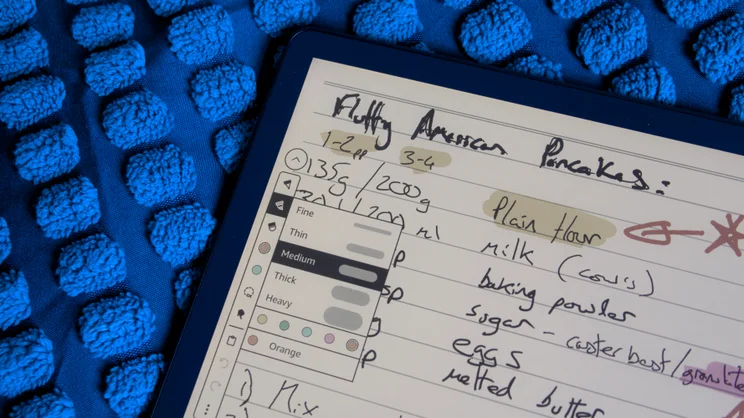 Fluffy American Pancakes:
1-2pp 3-4
135g / 200g Plain flour
/ 200 ml milk (cow's)
p baking powder
sp sugar - caster best /
g eggs
p melted butter
1) Mix
Fine
Thin
Medium
Thick
Heavy
Orange